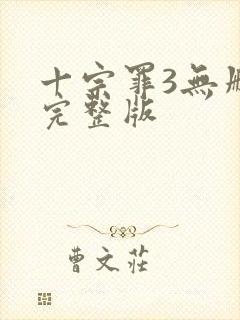 十宗罪3無
完整版
曹文莊